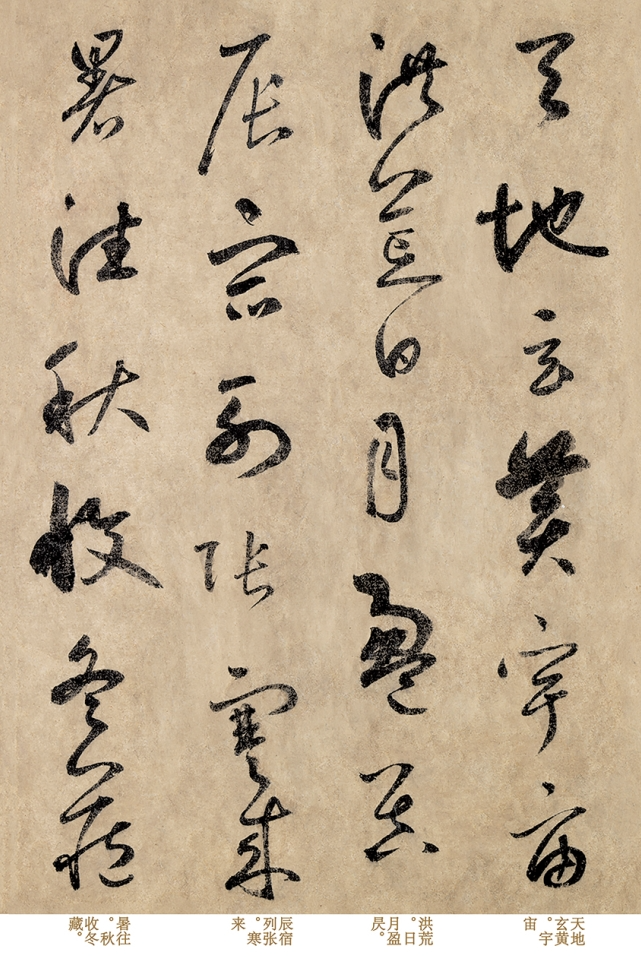 天地玄黄宇宙
洪荒日月盈昃
辰宿列张寒来
暑往秋收冬藏
天地玄黄。宇宙
洪荒。日月盈昃。
辰宿列张。寒来
暑往。秋收冬藏。